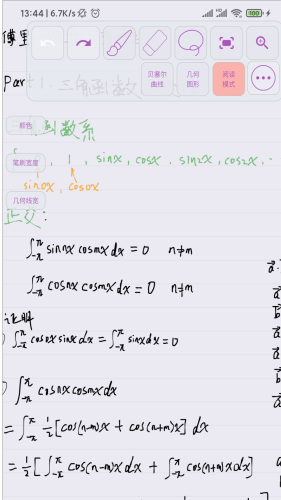 13:44 | 6.7K/s
100
傅里
贝塞尔
曲线
几何
图形
阅读
模式
Part1, 三角函数
颜色
函数系
笔刷宽度
1, sinx, cosx, sin2x, cos2x, ..
sin0x, cos0x
几何线宽
正交:
∫_{-π}^{π} sin nx cos mx dx = 0 n≠m
∫_{-π}^{π} cos nx cos mx dx = 0 n≠m
证明
∫_{-π}^{π} cos0x sinx dx = ∫_{-π}^{π} sinx dx = 0
∫_{-π}^{π} cos nx cos mx dx
= ∫_{-π}^{π} 1/2 [cos(n-m)x + cos(n+m)x] dx
= 1/2 [∫_{-π}^{π} cos(n-m)x dx + ∫_{-π}^{π} cos(n+m)x dx]